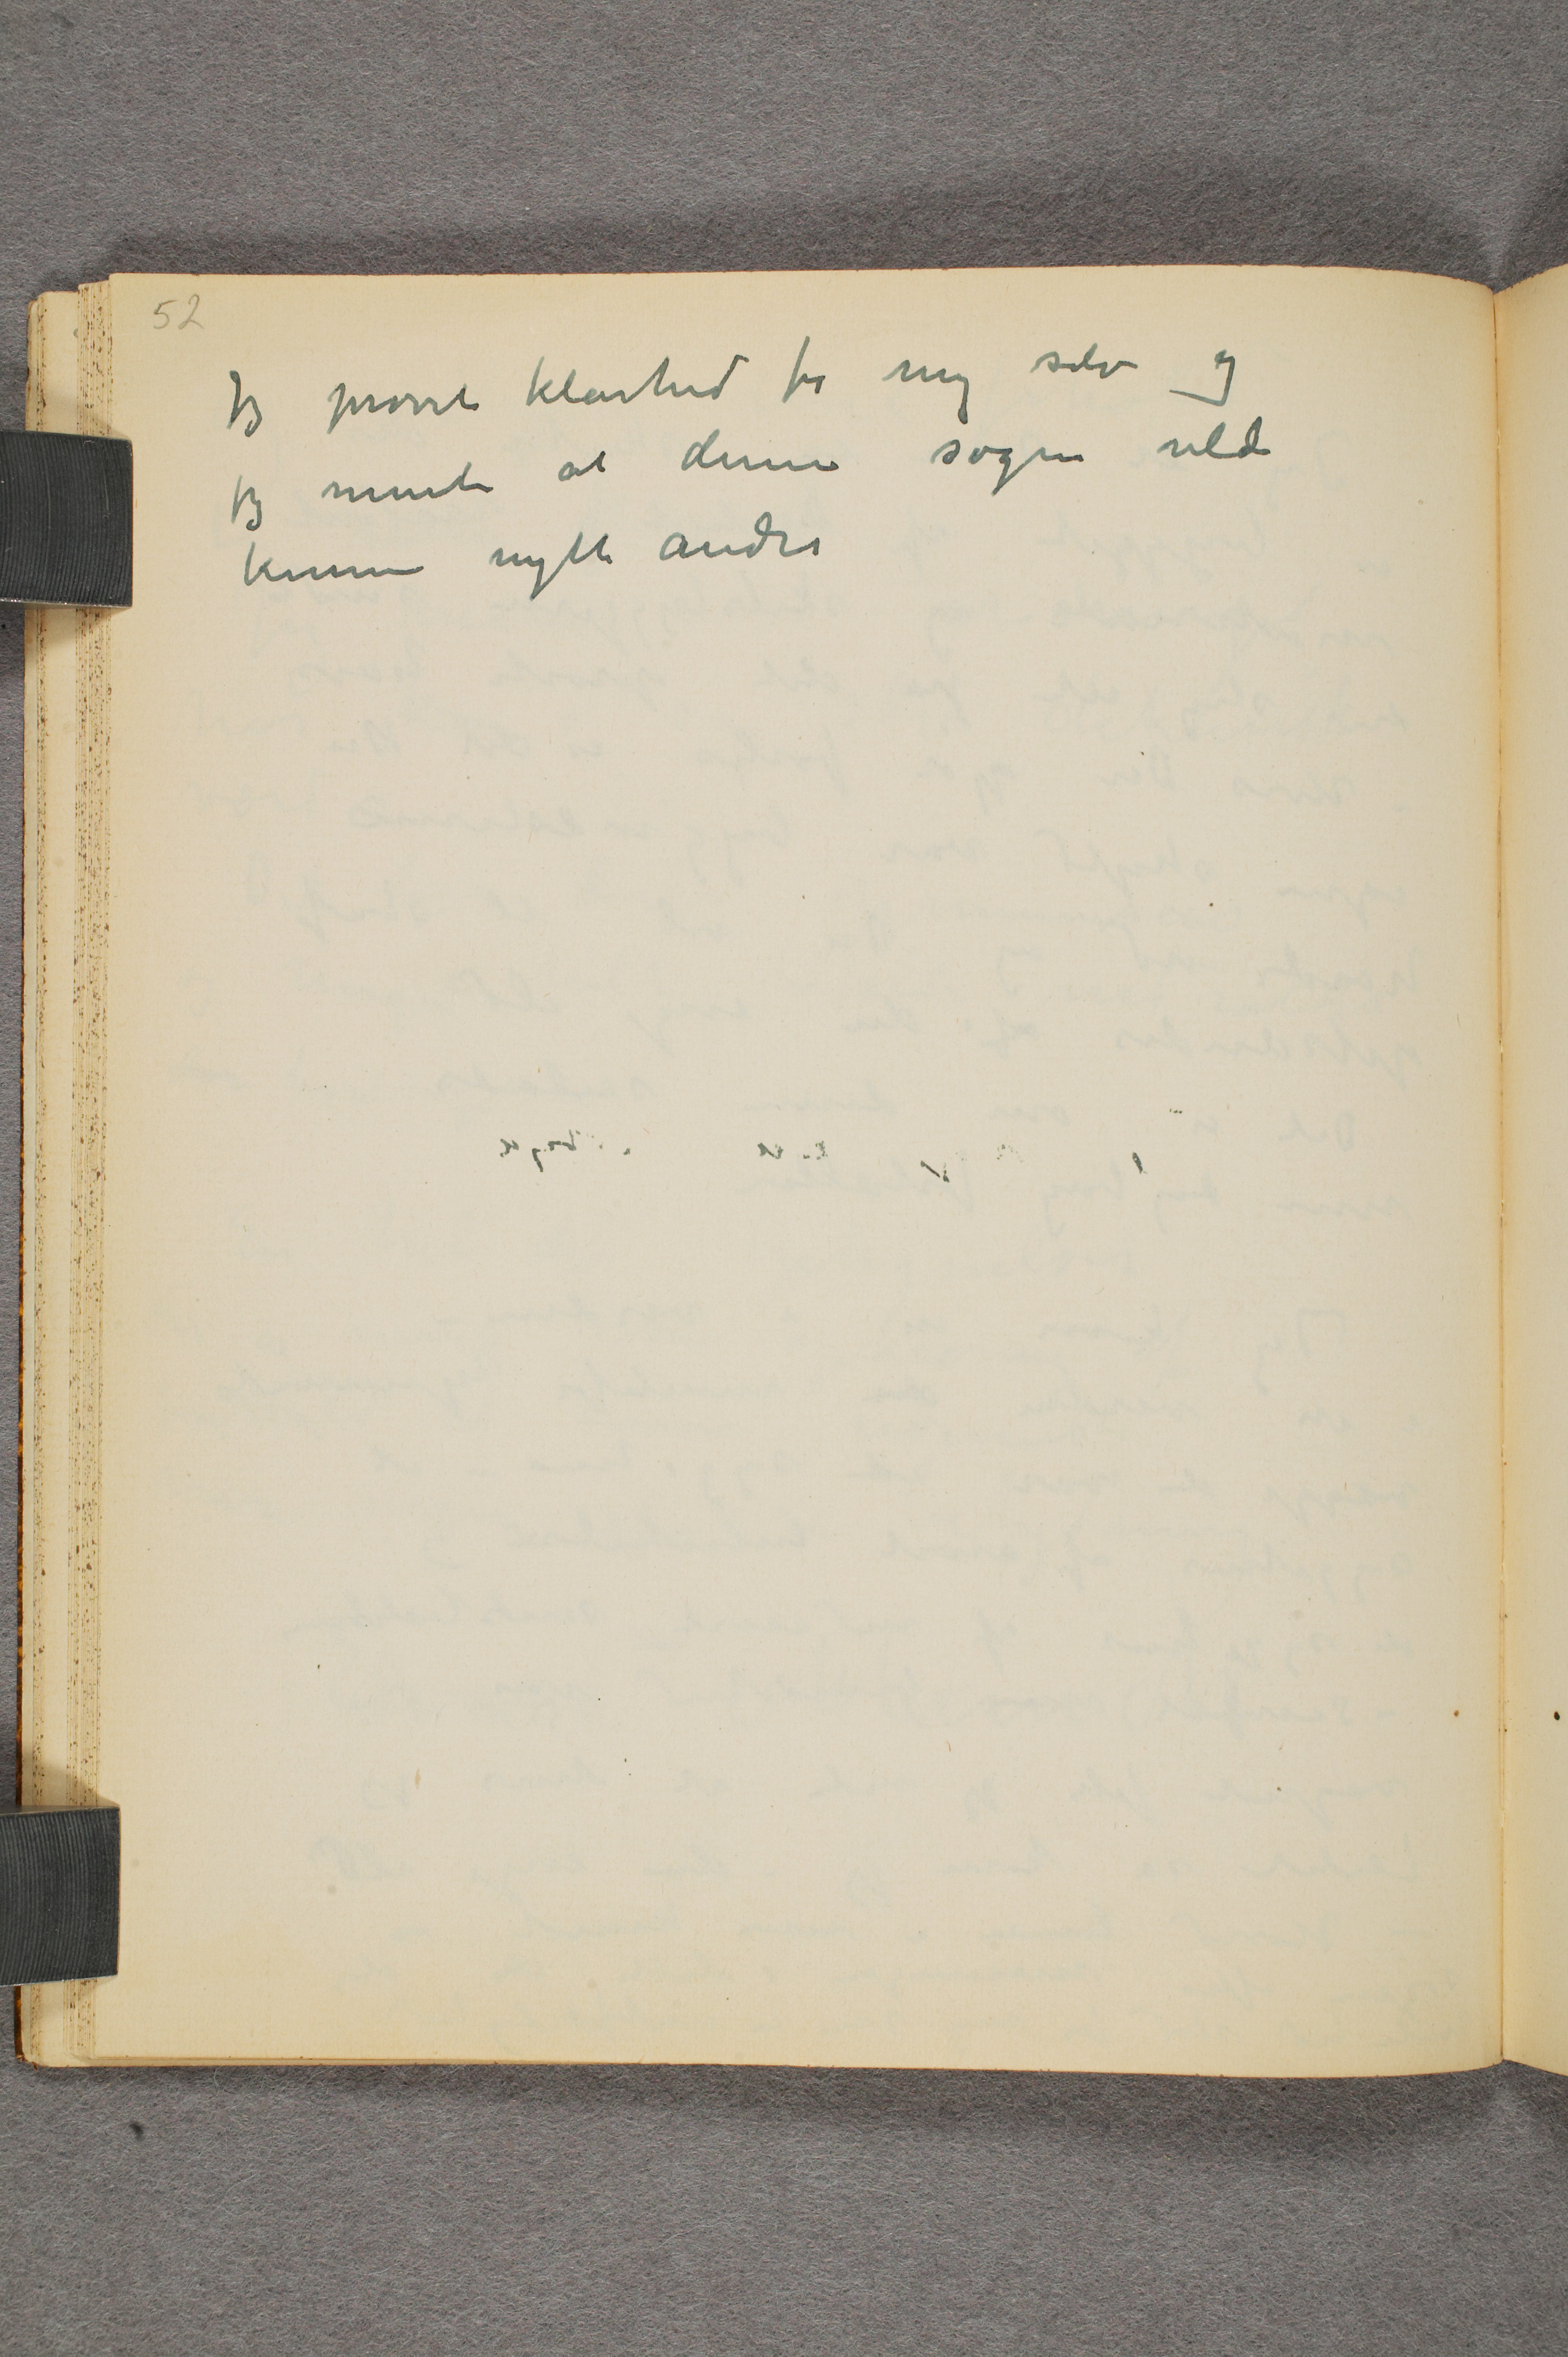 52
Jeg prøvet klarhed for mig selv og
jeg mente at denne søgen vilde
kunne nytte andre